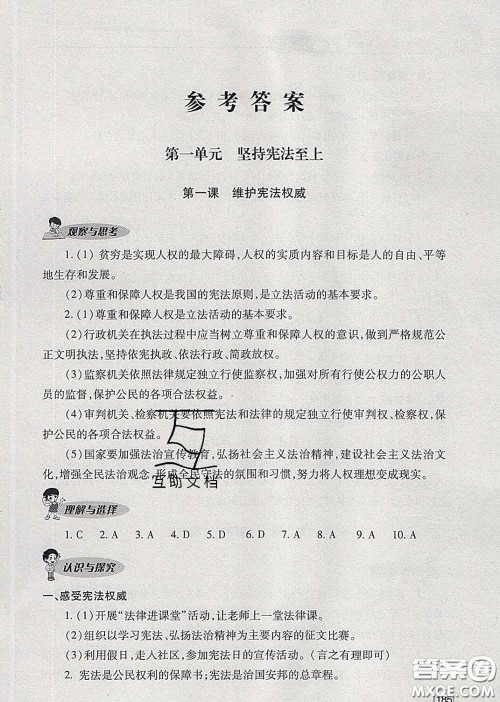 参考答案
第一单元 坚持宪法至上
第一课 维护宪法权威
观察与思考
1.(1) 贫穷是实现人权的最大障碍，人权的实质内容和目标是人的自由、平等
地生存和发展。
(2)尊重和保障人权是我国的宪法原则，是立法活动的基本要求。
2.(1)尊重和保障人权是立法活动的基本要求。
(2)行政机关在执法过程中应当树立尊重和保障人权的意识，做到严格规范公
正文明执法，坚持依宪执政、依法行政、简政放权。
(3)监察机关依照法律规定独立行使监察权，加强对所有行使公权力的公职人
员的监督，保护公民的各项合法权益。
(4)审判机关、检察机关要依照宪法和法律的规定独立行使审判权、检察权，保
护公民的各项合法权益。
(5)国家要加强法治宣传教育，弘扬社会主义法治精神，建设社会主义法治文
化，增强全民法治观念，形成全民守法的氛围和习惯，努力将人权理想变成现实。
互助文档
理解与选择
1.C 2.A 3.A 4.D 5.D 6.D 7.A 8.A 9.A 10.A
认识与探究
一、感受宪法权威
1.(1)开展“法律进课堂”活动，让老师上一堂法律课。
(2)组织以学习宪法、弘扬法治精神为内容的征文比赛。
(3)利用假日，走入社区，参加宪法的宣传活动。（言之有理即可）
2. 宪法是公民权利的保障书；宪法是治国安邦的总章程。
185
答案圈
MXQE.COM